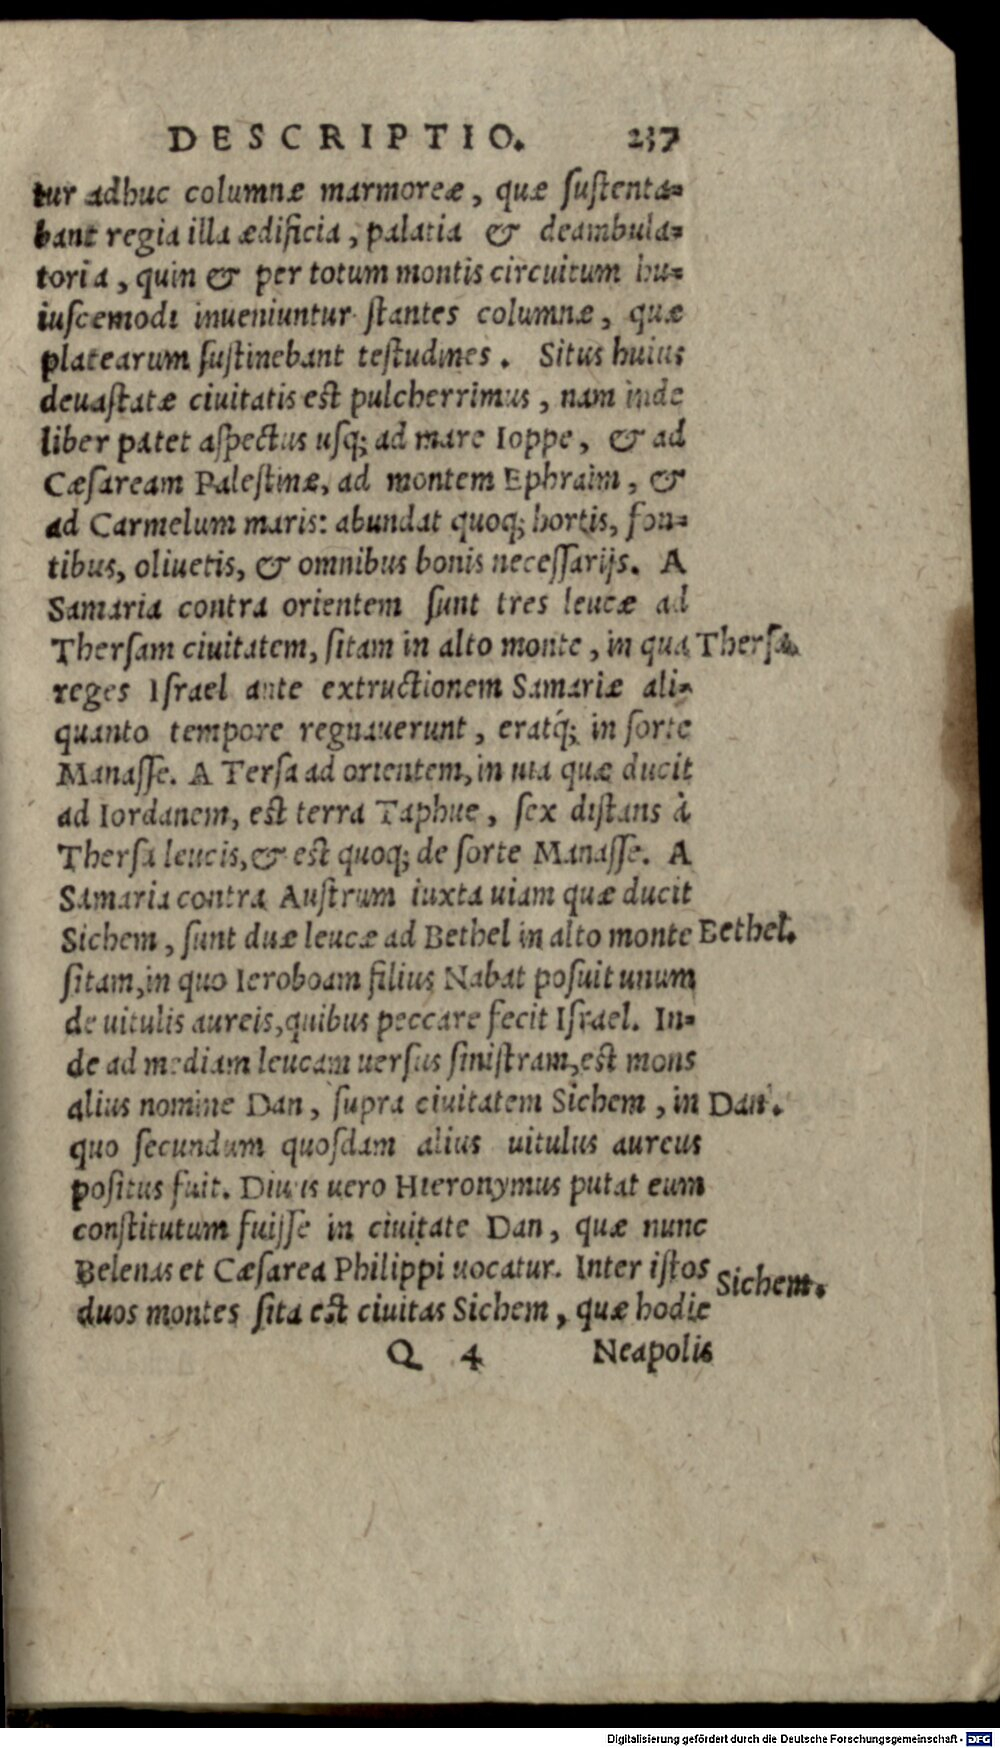 DESCRIPTIO. 237
tur adhuc columnæ marmoreæ, quæ ſuſtenta=
bant regia illa ædificia, palatia & deambula=
toria, quin & per totum montis circuitum hu=
iuſcemodi inueniuntur ſtantes columnæ, quæ
platearum ſuſtinebant teſtudines. Situs huius
deuaſtatæ ciuitatis est pulcherrimus, nam inde
liber patet aſpectus uſq; ad mare Ioppe, & ad
Cæſaream Palestinæ, ad montem Ephraim, &
ad Carmelum maris: abundat quoq; hortis, fon=
tibus, oliuetis, & omnibus bonis neceſſarijs. A
Samaria contra orientem ſunt tres leucæ ad
Therſam ciuitatem, ſitam in alto monte, in qua Therſa.
reges Iſrael ante extructionem Samariæ ali=
quanto tempore regnauerunt, eratq́; in ſorte
Manaſſe. A Terſa ad orientem, in uia quæ ducit
ad Iordanem, est terra Taphue, ſex diſtans à
Therſa leucis, & est quoq; de ſorte Manaſſe. A
Samaria contra Auſtrum iuxta uiam quæ ducit
Sichem, ſunt duæ leucæ ad Bethel in alto monte Bethel.
ſitam, in quo Ieroboam filius Nabat poſuit unum
de uitulis aureis, quibus peccare fecit Iſrael. In=
de ad mediam leucam uerſus ſiniſtram, est mons
alius nomine Dan, ſupra ciuitatem Sichem, in Dan.
quo ſecundum quoſdam alius uitulus aureus
poſitus fuit. Diuus uero Hieronymus putat eum
conſtitutum fuiſſe in ciuitate Dan, quæ nunc
Belenas et Cæſarea Philippi uocatur. Inter iſtos Sichem.
duos montes ſita est ciuitas Sichem, quæ hodie
Q 4 Neapolis
Digitalisierung gefördert durch die Deutsche Forschungsgemeinschaft - DFG